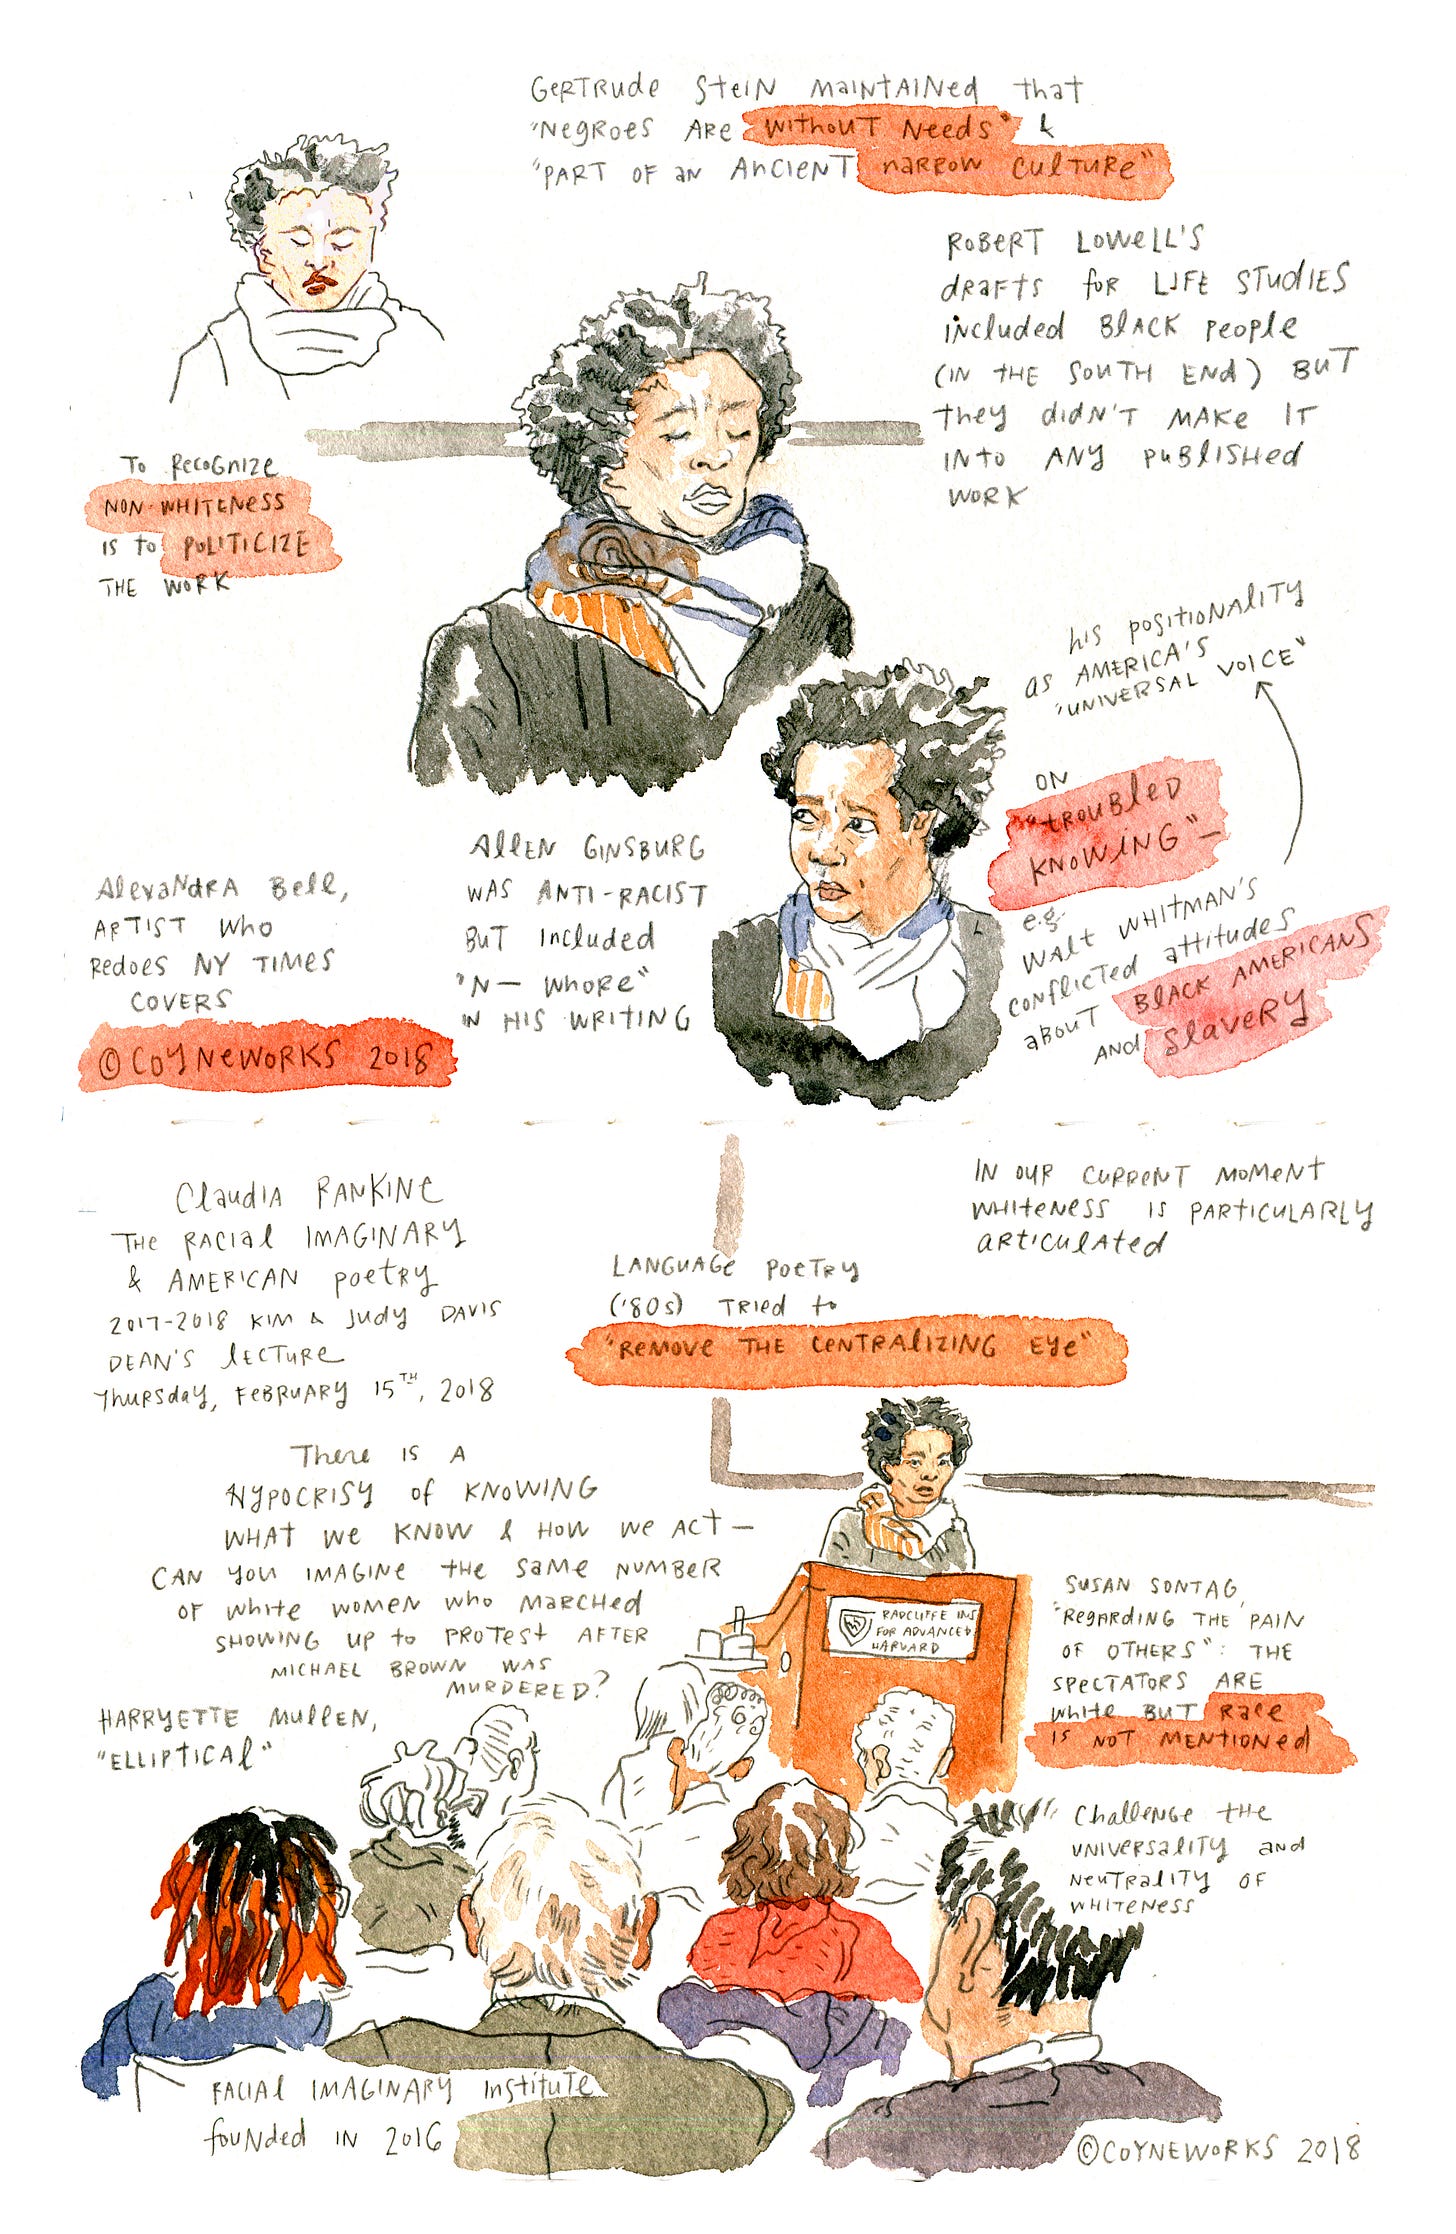 Gertrude Stein maintained that
"Negroes are without needs" &
"part of an ancient narrow culture"
Robert Lowell's
drafts for Life Studies
included Black people
(in the South End) but
they didn't make it
into any published
work
To recognize
non-whiteness
is to politicize
the work
his positionality
as America's
"universal voice"
on
"troubled
knowing"—
e.g.
Walt Whitman's
conflicted attitudes
about Black Americans
and slavery
Allen Ginsburg
was anti-racist
but included
"N— whore"
in his writing
Alexandra Bell,
artist who
redoes NY Times
covers
©Coyneworks 2018
Claudia Rankine
The Racial Imaginary
& American Poetry
2017-2018 Kim & Judy Davis
Dean's Lecture
Thursday, February 15th, 2018
In our current moment
whiteness is particularly
articulated
Language poetry
('80s) tried to
"remove the centralizing eye"
There is a
hypocrisy of knowing
what we know & how we act—
can you imagine the same number
of white women who marched
showing up to protest after
Michael Brown was
murdered?
Radcliffe Ins
for Advanced
Harvard
Susan Sontag,
"Regarding the Pain
of Others": the
spectators are
white but race
is not mentioned
Harryette Mullen,
"elliptical"
Challenge the
universality and
neutrality of
whiteness
Racial Imaginary Institute
founded in 2016
©Coyneworks 2018